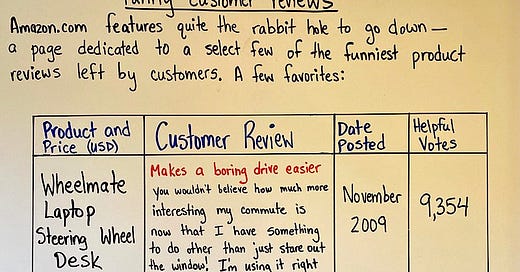 Funny Customer Reviews
Amazon.com features quite the rabbit hole to go down —
a page dedicated to a select few of the funniest product
reviews left by customers. A few favorites:
Product and Price (USD)
Customer Review
Date Posted
Helpful Votes
Wheelmate
Laptop
Steering Wheel
Desk
Makes a boring drive easier
you wouldn't believe how much more
interesting my commute is
now that I have something
to do other than just stare out
the window! I'm using it right
November
2009
9,354